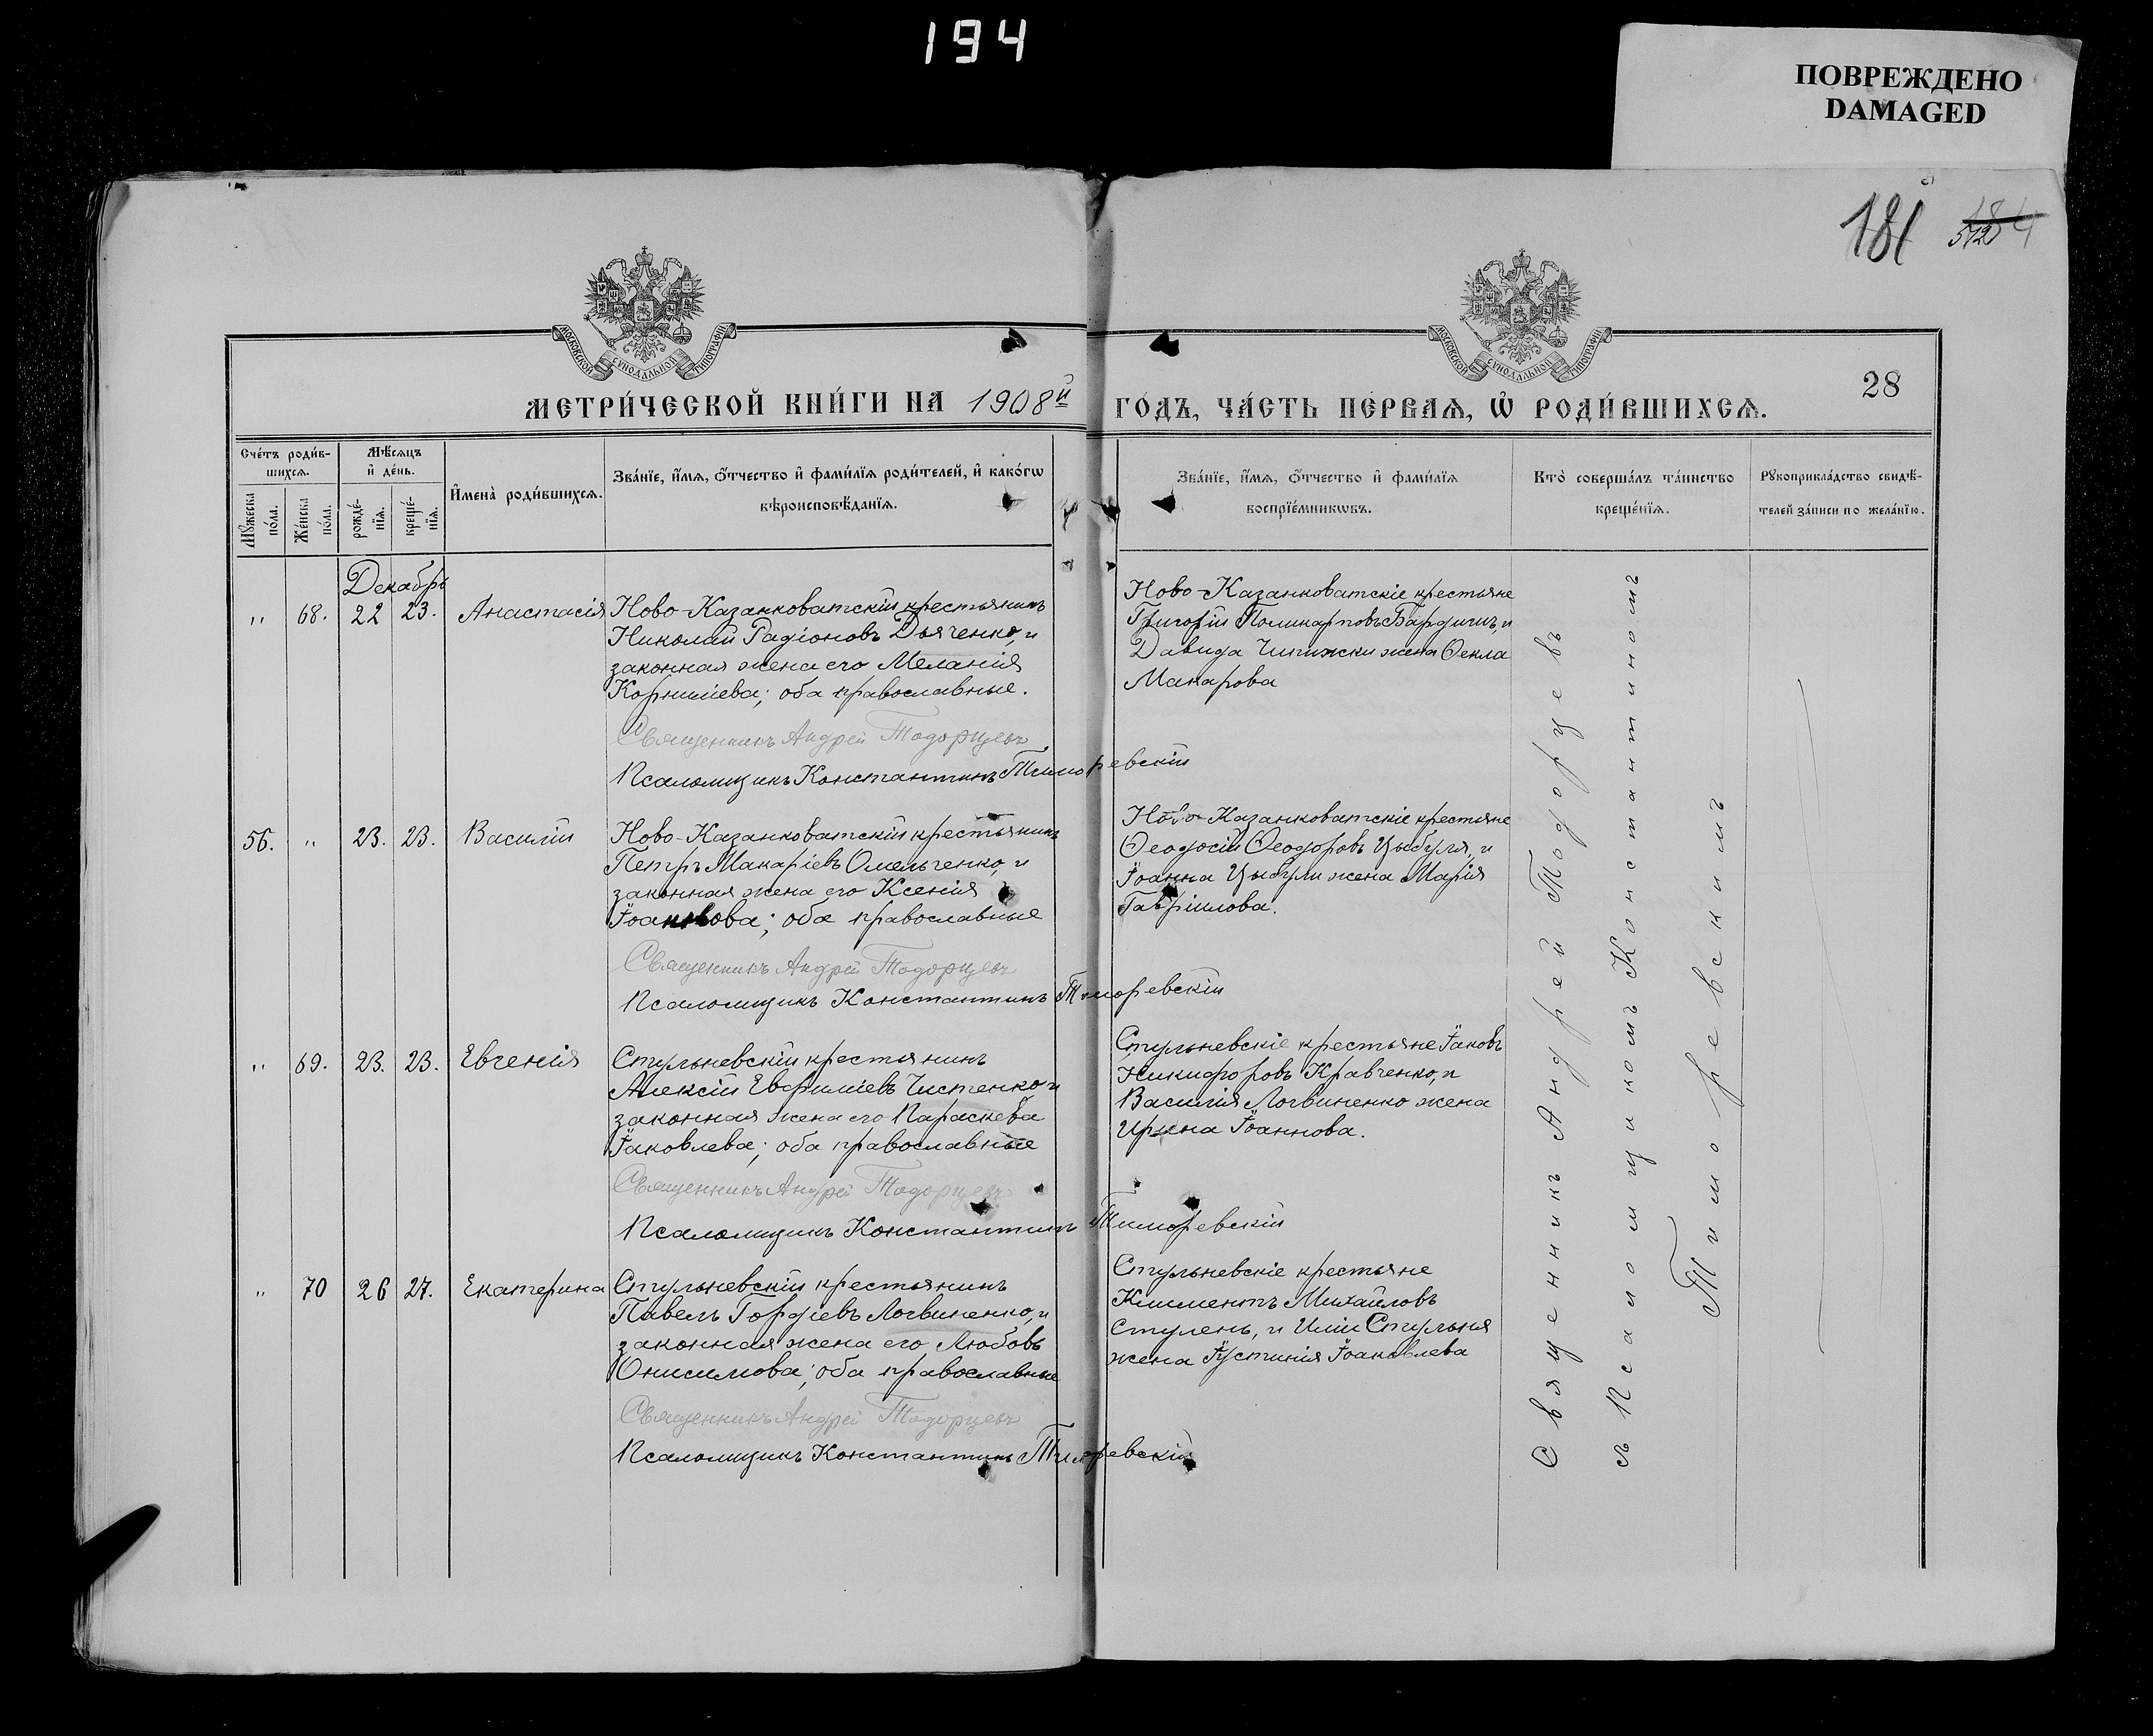 194
ПОВРЕЖДЕНО
DAMAGED
181
МОСКОВСКОЙ СѴНОДАЛЬНОЙ ТИПОГРАФІИ
МОСКОВСКОЙ СѴНОДАЛЬНОЙ ТИПОГРАФІИ
28
МЕТРИ́ЧЕСКОЙ КНИ́ГИ НА 1908й ГО́ДЪ, ЧА́СТЬ ПЕ́РВАЯ, Ѡ РОДИ́ВШИХСЯ.
Сче́тъ роди́в-
шихся.
Мꙋжеска по́ла.
Же́нска по́ла.
Мѣ́сяцъ
и҆ де́нь.
рожде́-
нїя.
креще́-
нїя.
И҆мена̀ роди́вшихся.
Зва́нїе, и҆́мя, ѻ҆́тчество и҆ фами́лїя роди́телей, и҆ како́гѡ
вѣроисповѣ́данїя.
Зва́нїе, и҆́мя, ѻ҆́тчество и҆ фами́лїя
воспрїе́мникѡвъ.
Кто̀ соверша́лъ та́инство
креще́нїя.
Рꙋкоприкла́дство свидѣ́-
телей за́писи по жела́нїю.
Декабрь
" 68. 22 23. Анастасія
Ново-Казанковатскій крестьянинъ
Николай Радіоновъ Дьяченко, и
законная жена его Меланія
Корниліева; оба православные.
Священникъ Андрей Тодорцевъ
Псаломщикъ Константинъ Тиморевскій
Ново-Казанковатскіе крестьяне
Григорій Поликарповъ и
Давида жена Ѳекла
Макарова
56. " 23. 23. Василій
Ново-Казанковатскій крестьянинъ
Петръ Макаріевъ Омельченко, и
законная жена его Ксенія
Іоаннова; оба православные
Священникъ Андрей Тодорцевъ
Псаломщикъ Константинъ Тиморевскій
Ново-Казанковатскіе крестьяне
Ѳеодосій Ѳеодоровъ Цыбуля, и
Іоанна Цыбули жена Марія
Гавріилова.
" 69. 23. 23. Евгенія
Стульневскій крестьянинъ
Алексій Евфиміевъ Чистенко и
законная жена его Параскева
Іаковлева; оба православные
Священникъ Андрей Тодорцевъ
Псаломщикъ Константинъ Тиморевскій
Стульневскіе крестьяне Іаковъ
Никифоровъ Кравченко, и
Василія Логвиненко жена
Ирина Іоаннова.
" 70 26 27. Екатерина
Стульневскій крестьянинъ
Павелъ Гордіевъ Логвиненко, и
законная жена его Любовь
Онисимова; оба православные
Священникъ Андрей Тодорцевъ
Псаломщикъ Константинъ Тиморевскій
Стульневскіе крестьяне
Климентъ Михайловъ
Стулень, и Иліи Стульня
жена Іустинія Іаковлева
Священникъ Андрей Тодорцевъ
съ Псаломщикомъ Константиномъ
Тиморевскимъ